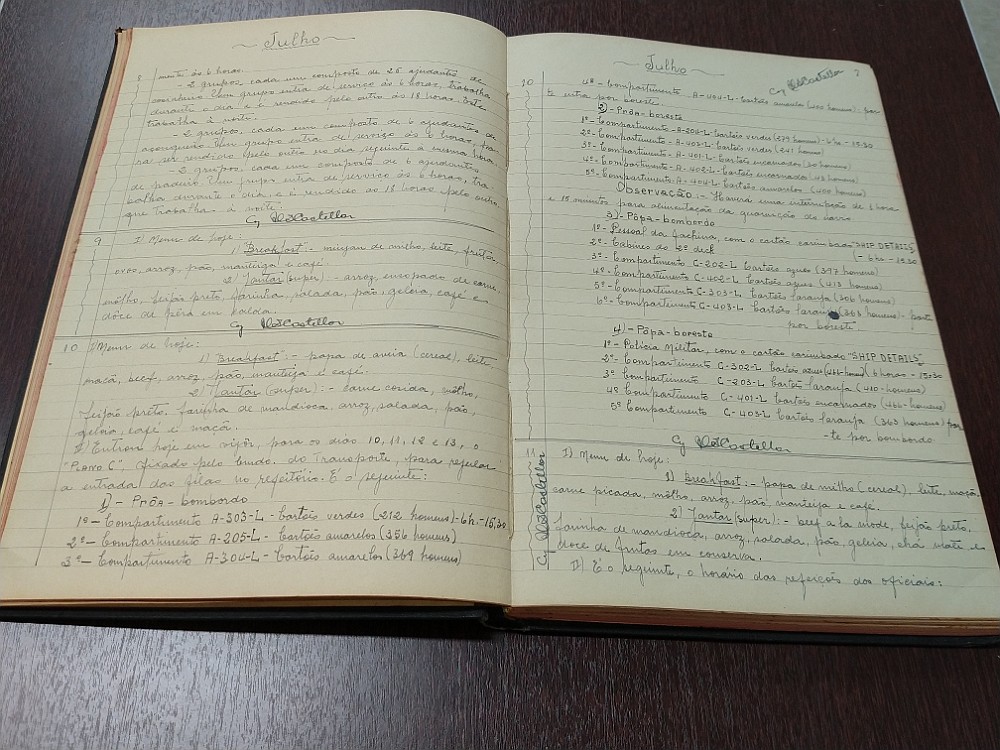 ~ Julho ~
8 mento às 6 horas.
- 2 grupos, cada um composto de 25 ajudantes de
cosinheiro. Um grupo entra de serviço às 6 horas, trabalha
durante o dia e é rendido pelo outro às 18 horas. Este
trabalha à noite.
- 2 grupos, cada um composto de 6 ajudantes de
açougueiro. Um grupo entra de serviço às 6 horas, pa-
ra ser rendido pelo outro no dia seguinte à mesma hora.
- 2 grupos, cada um composto de 6 ajudantes
de padeiro. Um grupo entra de serviço às 6 horas, tra-
balha durante o dia, e é rendido às 18 horas, pelo outro
que trabalha à noite.
9 I) Menu de hoje:
1) "Breakfast": - mingau de milho, leite, frutas,
ovos, arroz, pão, manteiga e café.
2) Jantar (super): - arroz, ensopado de carne,
môlho, feijão preto, farinha, salada, pão, geleia, café e
dôce de pêra em calda.
10 I) Menu de hoje:
1) "Breakfast": - papa de aveia (cereal), leite,
maçã, beef, arroz, pão, manteiga e café.
2) Jantar (super): - carne cosida, môlho,
feijão preto, farinha de mandioca, arroz, salada, pão,
geleia, café e maçã.
II) Entrou hoje em vigôr, para os dias 10, 11, 12 e 13, o
"PLANO C", fixado pelo Comdo. do Transporte, para regular
a entrada das filas no refeitório. É o seguinte:
1) - PRÔA - bombordo
1º - Compartimento A-303-L - Cartões verdes (212 homens) - 6h. - 15,30
2º - Compartimento A-205-L - Cartões amarelos (356 homens)
3º - Compartimento A-304-L - Cartões amarelos (369 homens)
~ Julho ~
10 4º - Compartimento A-404-L - Cartões amarelos (400 homens) por
e entra por boreste.
2) - PRÔA - boreste
1º - Compartimento - A-206-L - Cartões verdes (279 homens) - 6 hs - 15:30
2º - Compartimento - A-403-L - Cartões verdes (241 homens)
3º - Compartimento - A-401-L - Cartões encarnados
4º - Compartimento - A-402-L - Cartões encarnados
5º - Compartimento - A-404-L - Cartões amarelos (400 homens)
Observação: - Haverá uma interrupção de 1 hora
e 15 minutos para alimentação da guarnição do barco
3) - Pôpa - bombordo
1º - Pessoal da fachina, com o cartão carimbado "SHIP DETAILS"
2º - Cabines do 2º deck (- 6 hs - 15:30
3º - Compartimento C-202-L Cartões azues (397 homens)
4º - Compartimento C-402-L Cartões azues (413 homens)
5º - Compartimento C-303-L Cartões laranja (306 homens)
6º - Compartimento C-403-L Cartões laranja (363 homens) - parte
por boreste
4) - Pôpa - boreste
1º - Policia Militar, com o cartão carimbado "SHIP DETAILS"
2º Compartimento C-302-L Cartões azues (466 homens) (6 horas - 15:30
3º Compartimento C-203-L Cartões laranja (410 homens)
4º Compartimento C-401-L Cartões encarnados (466 homens)
5º Compartimento C-403-L Cartões laranja (363 homens) par-
-te por bombordo.
11 I) Menu de hoje:
1) Breakfast: - papa de milho (cereal), leite, maçã,
carne picada, môlho, arroz, pão, manteiga e café.
2) Jantar (super): - beef a la mode, feijão prêto,
farinha de mandioca, arroz, salada, pão, geleia, chá mate e
doce de frutas em conserva.
II) É o seguinte, o horário das refeições dos oficiais: